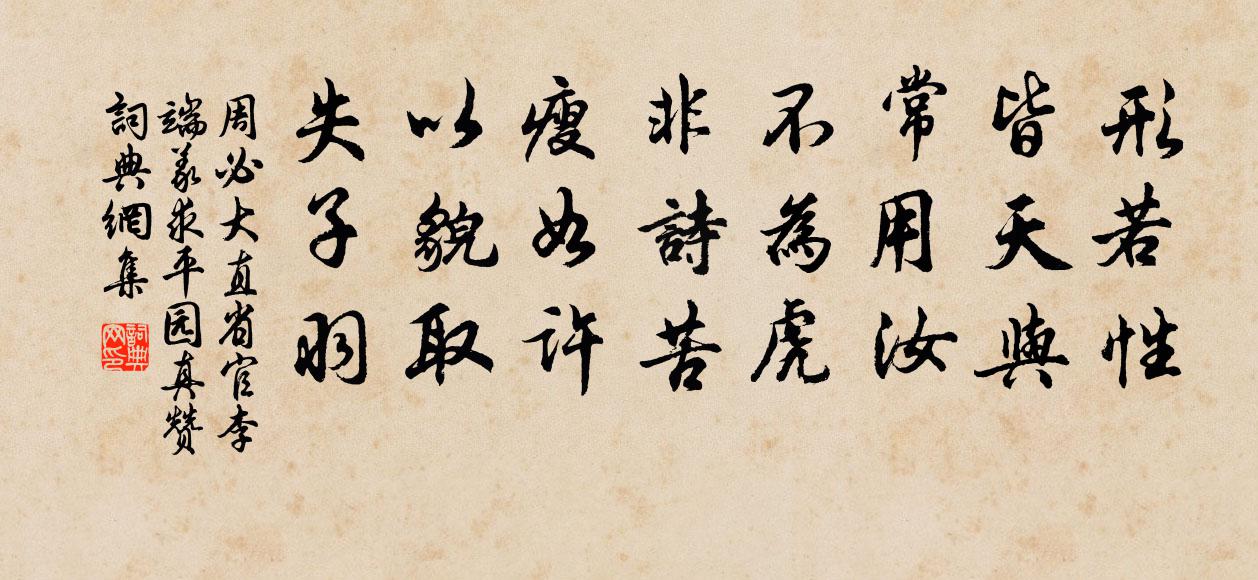 形若性
皆天與
常用汝
不為虎
非詩苦
瘦如許
以貌取
失子羽
周必大直省官李
端義求平园真赞
詞典網集
詞典網印